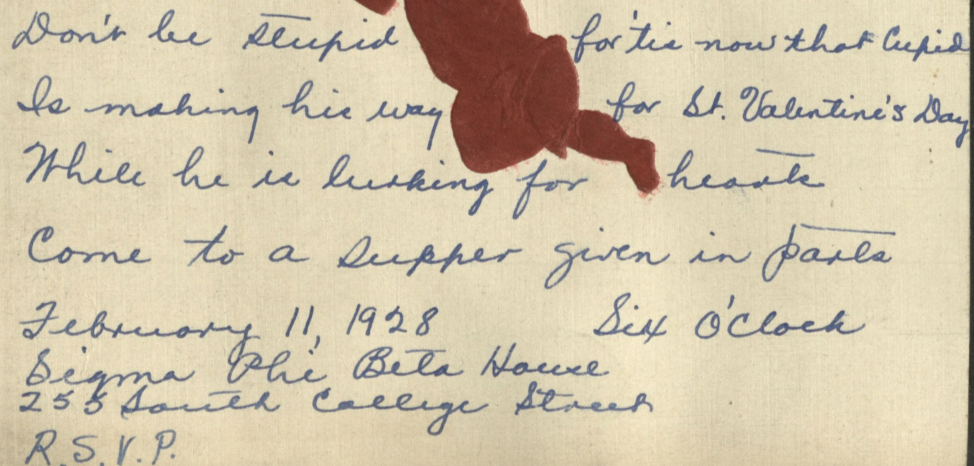 Don't be stupid for 'tis now that Cupid
Is making his way for St. Valentine's Day
While he is lurking for hearts
Come to a supper given in parts
February 11, 1928 Six O'Clock
Sigma Phi Beta House
255 South College Street
R.S.V.P.